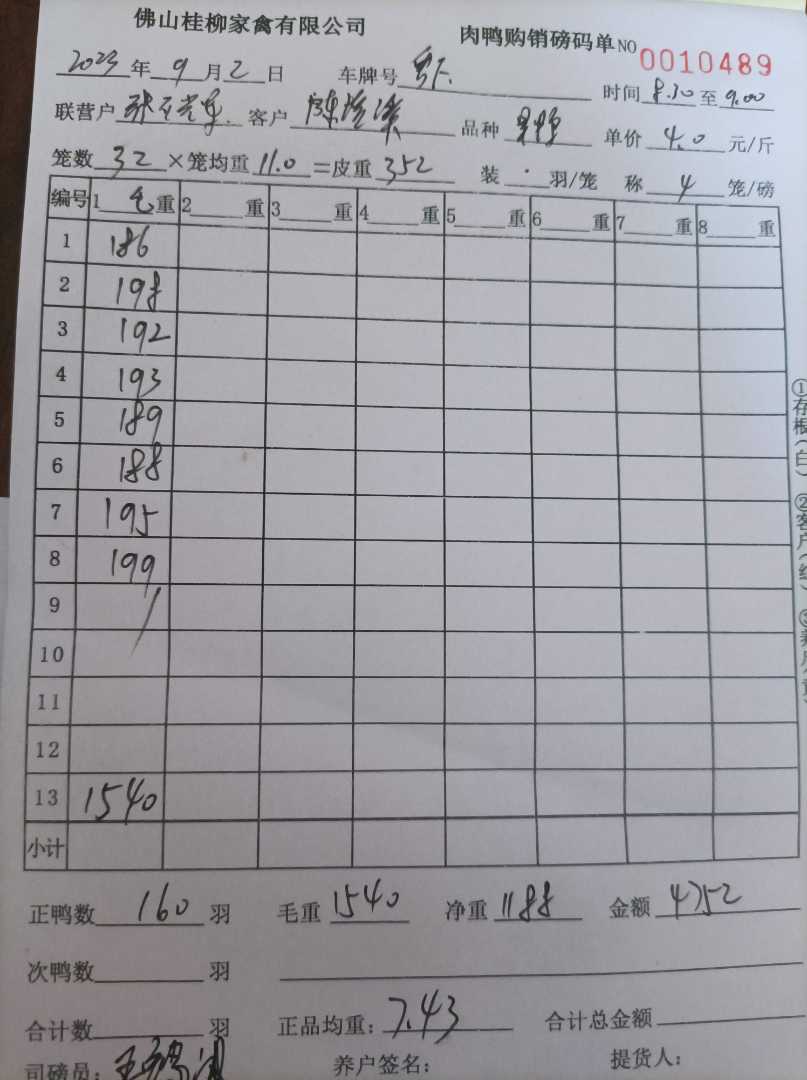 佛山桂柳家禽有限公司 肉鸭购销磅码单 NO 0010489
2023年9月2日 车牌号 时间8.30至9.00
联营户 客户 品种 单价4.0元/斤
笼数32×笼均重11.0=皮重352 装 羽/笼 称4笼/磅
编号 1毛重 2 重 3 重 4 重 5 重 6 重 7 重 8 重
1 186
2 198
3 192
4 193
5 189
6 188
7 195
8 199
9 /
10
11
12
13 1540
小计
正鸭数160羽 毛重1540 净重1188 金额4752
次鸭数 羽
合计数 羽 正品均重:7.43 合计总金额
司磅员: 养户签名: 提货人:
①存根(白) ②客户(红)